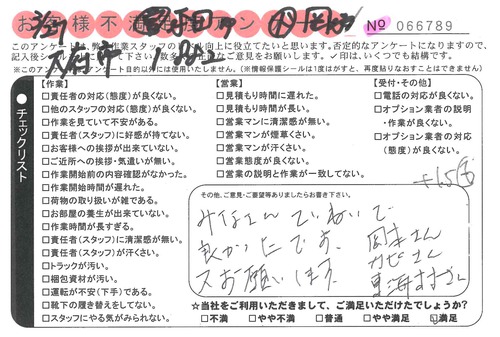 お客様不満
№ 066789
3/27
このアンケートは、弊
作業スタッフの
向上に役立てたいと思います。否定的なアンケートになりますので、
ご意見をお願いします。✓印は、いくつでも結構です。
※このアンケート
目的以外には使用いたしません。(※情報保護シールは1度はがすと、再度貼りなおすことはできません)
チェックリスト
【作業】
□責任者の対応(態度)が良くない。
□他のスタッフの対応(態度)が良くない。
□作業を見ていて不安がある。
□責任者(スタッフ)に好感が持てない。
□お客様への挨拶が出来ていない。
□ご近所への挨拶・気遣いが無い。
□作業開始前の内容確認がなかった。
□作業開始時間が遅れた。
□荷物の取り扱いが雑である。
□お部屋の養生が出来ていない。
□作業時間が長すぎる。
□責任者(スタッフ)に清潔感が無い。
□責任者(スタッフ)が汗くさい。
□トラックが汚い。
□梱包資材が汚い。
□運転が不安(下手)である。
□靴下の履き替えをしてない。
□スタッフにやる気がみられない。
【営業】
□見積もり時間に遅れた。
□見積もり時間が長い。
□営業マンに清潔感が無い。
□営業マンが煙草くさい。
□営業マンが汗くさい。
□営業態度が良くない。
□営業の説明と作業が一致してない。
【受付・その他】
□電話の対応が良くない。
□オプション業者の説明
・作業が良くない。
□オプション業者の対応
(態度)が良くない。
その他、ご意見・ご要望等ありましたらお書き下さい。
みなさんていねいで
良かったです。
又お願いします。
岡本さん
東海村さん
☆当社をご利用いただきまして、ご満足いただけたでしょうか?
□不満 □やや不満 □普通 □やや満足 ☑満足